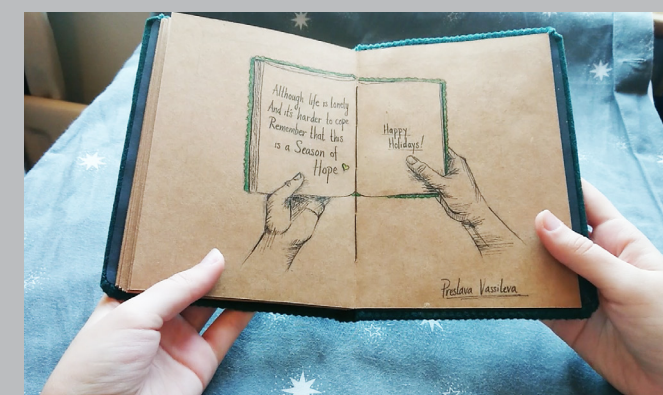 Although life is lonely
And it's harder to cope
Remember that this
is a Season of
Hope
Happy
Holidays!
Preslava Vassileva